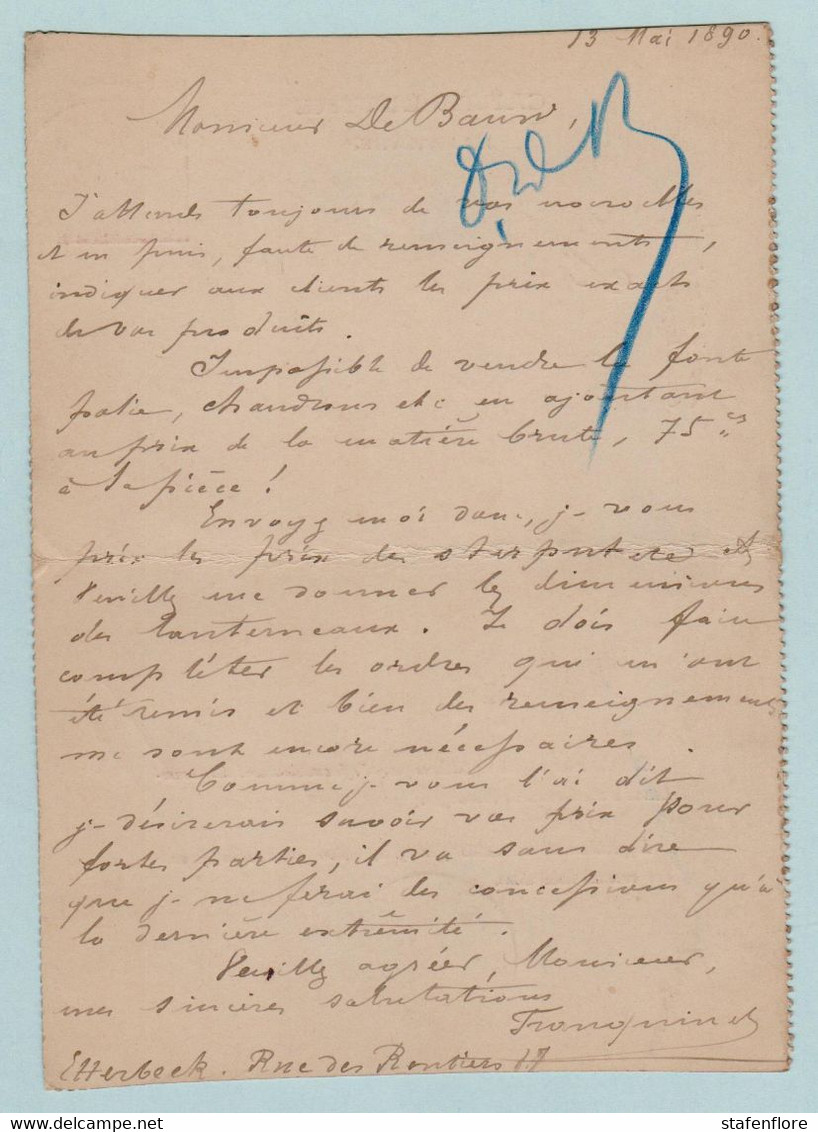 13 Mai 1890.
Monsieur De Bauw,
J'attends toujours de vos nouvelles
et en puis, faute de renseignements,
indiquer aux clients les prix exacts
de vos produits.
Impossible de vendre la fonte
polie, chaudrons etc en ajoutant
au prix de la matière brute, 75 cs
à la pièce !
Envoyez moi donc, je vous
prie les prix des sterputs etc et
veuillez me donner les dimensions
des lanterneaux. Je dois faire
compléter les ordres qui m'ont
été remis et bien des renseignements
me sont encore nécessaires.
Comme je vous l'ai dit
je désirerais savoir vos prix pour
fortes parties, il va sans dire
que je ne ferai des concessions qu'à
la dernière extrêmité.
Veuillez agréer, Monsieur,
mes sincères salutations
Etterbeek. Rue des Rentiers
stafenflore